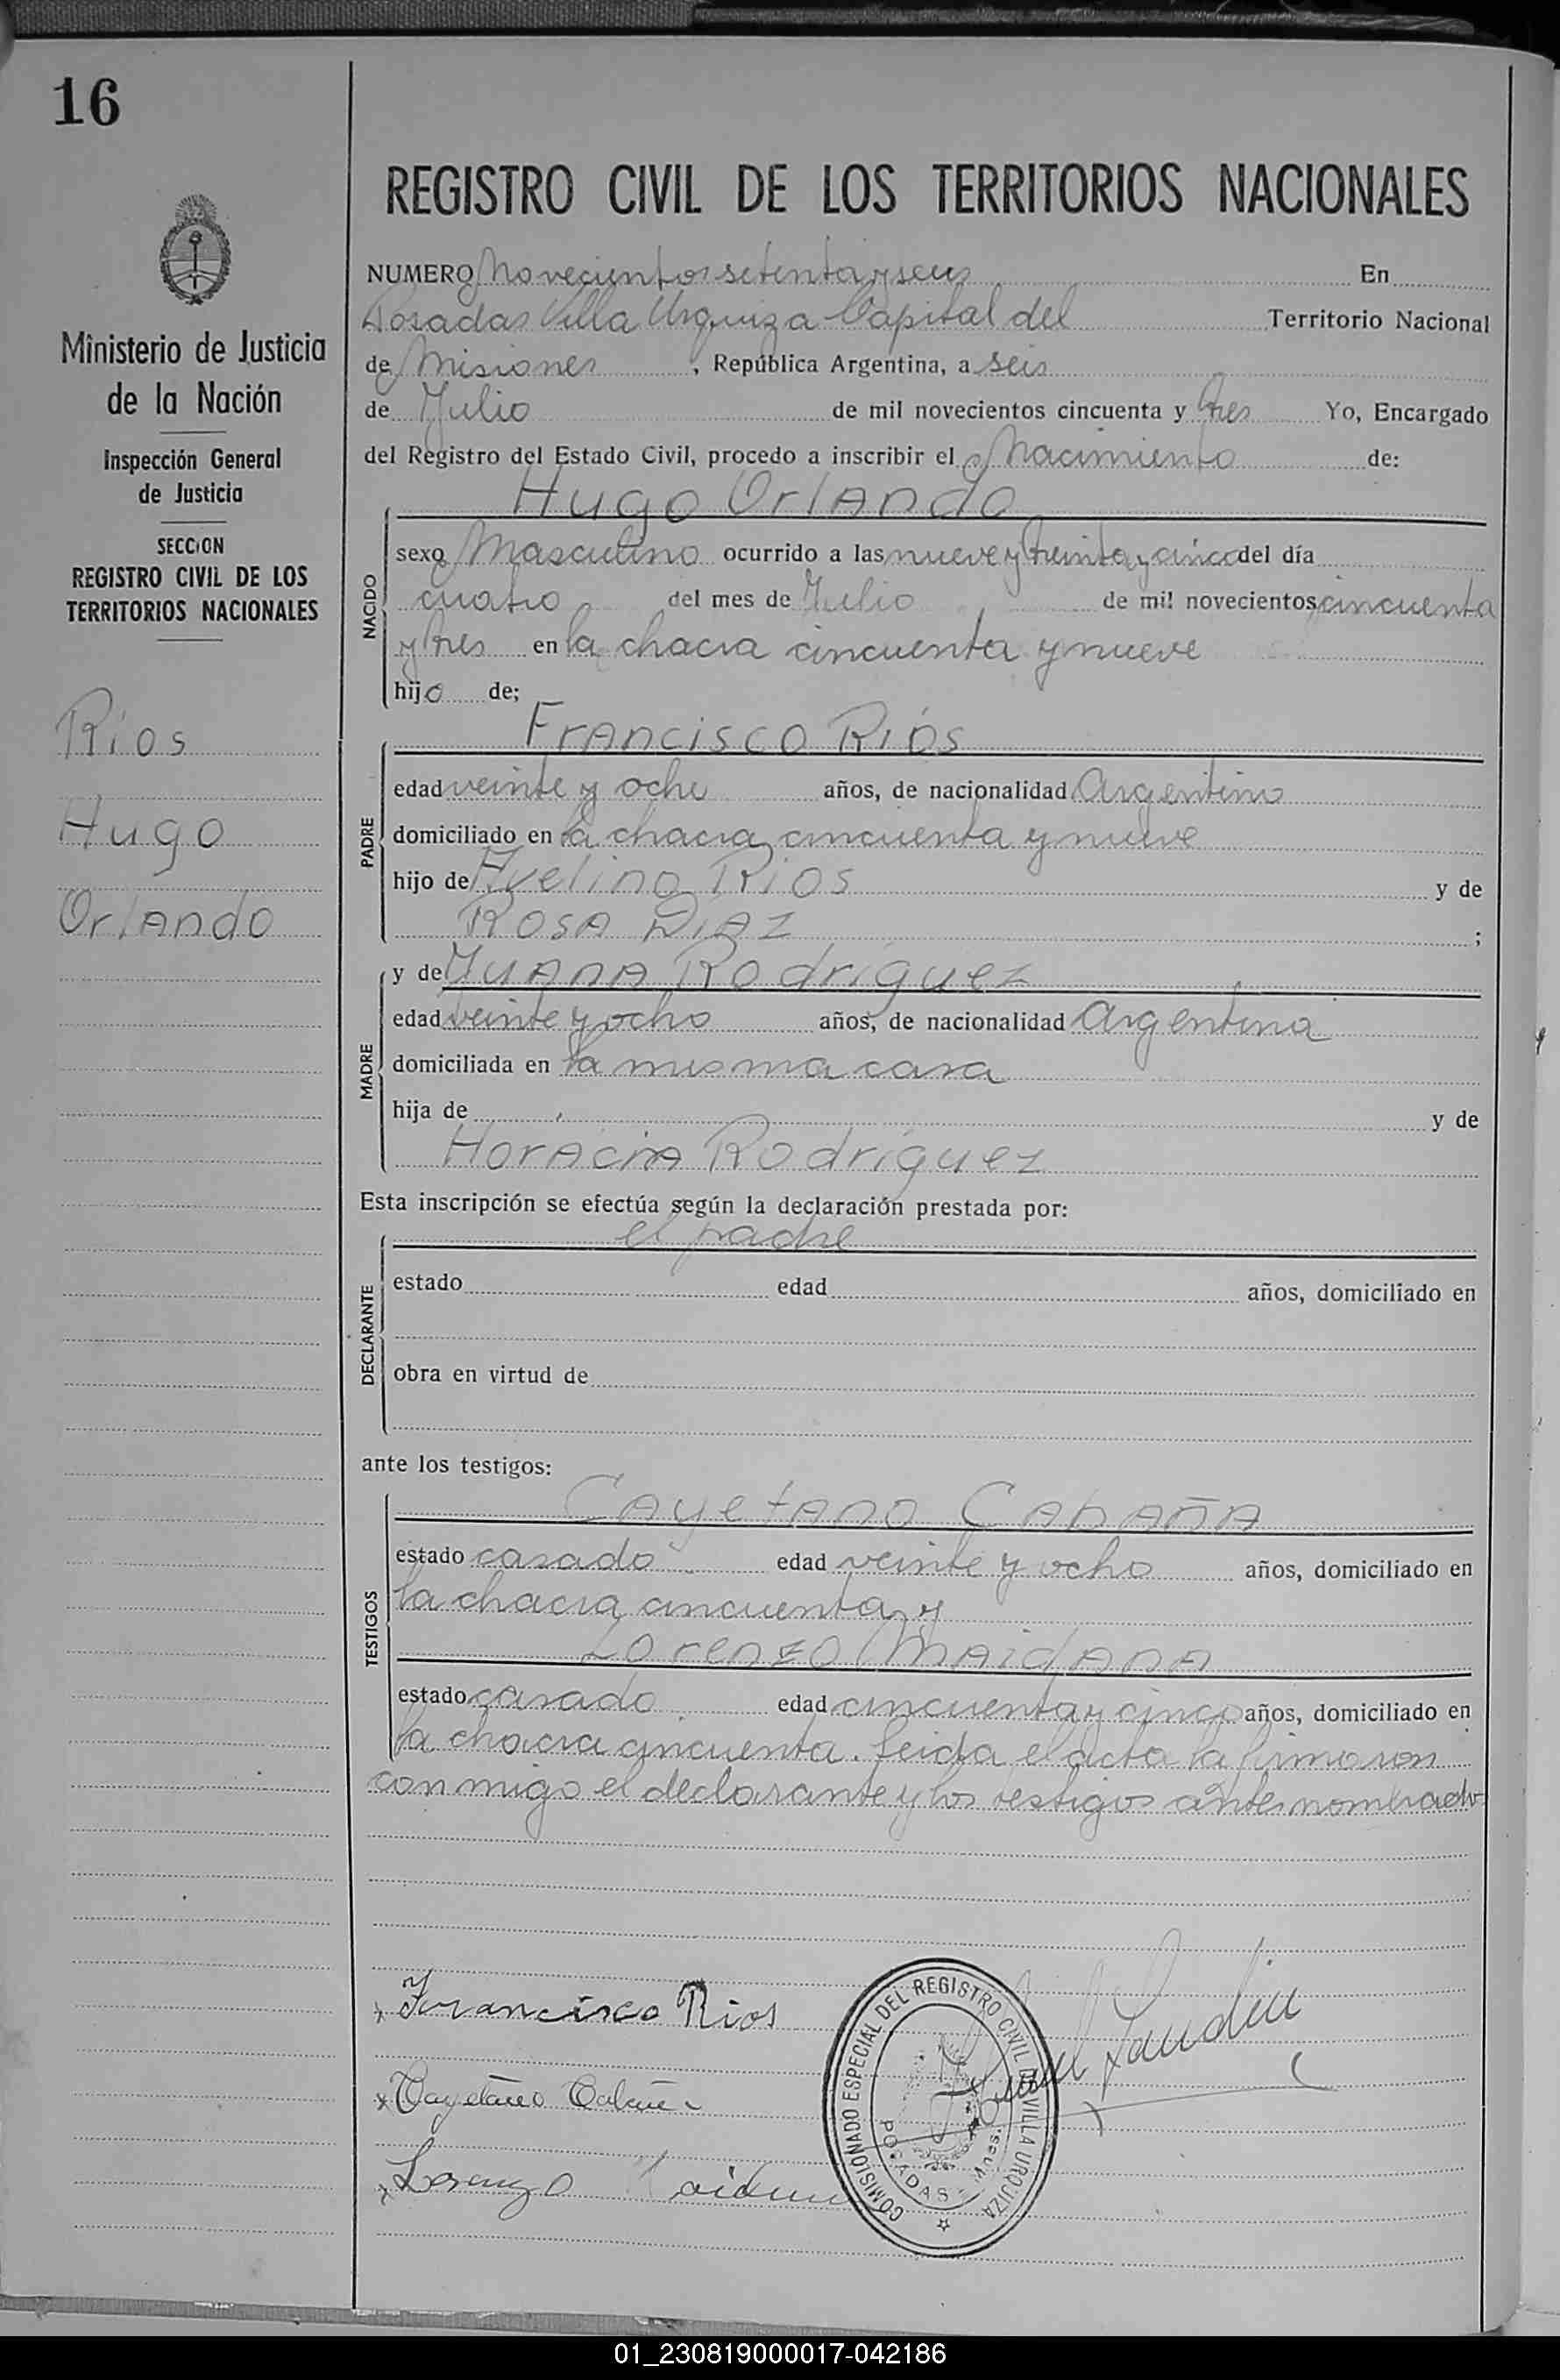 16
Ministerio de Justicia
de la Nación
Inspección General
de Justicia
SECCION
REGISTRO CIVIL DE LOS
TERRITORIOS NACIONALES
Ríos
Hugo
Orlando
REGISTRO CIVIL DE LOS TERRITORIOS NACIONALES
NUMERO Novecientos setenta y seis En
Posadas Villa Urquiza Capital del Territorio Nacional
de Misiones, República Argentina, a seis
de Julio de mil novecientos cincuenta y tres Yo, Encargado
del Registro del Estado Civil, procedo a inscribir el Nacimiento de:
Hugo Orlando
NACIDO
sexo Masculino ocurrido a las nueve y treinta y cinco del día
cuatro del mes de Julio de mil novecientos cincuenta
y tres en la chacra cincuenta y nueve
hijo de;
Francisco Ríos
PADRE
edad veinte y ocho años, de nacionalidad Argentino
domiciliado en la chacra cincuenta y nueve
hijo de Avelino Ríos y de
Rosa Díaz ;
MADRE
y de Juana Rodríguez
edad veinte y ocho años, de nacionalidad Argentina
domiciliada en la misma casa
hija de y de
Horacia Rodríguez
Esta inscripción se efectúa según la declaración prestada por:
el padre
DECLARANTE
estado edad años, domiciliado en
obra en virtud de
ante los testigos:
Cayetano Cabaña
TESTIGOS
estado casado edad veinte y ocho años, domiciliado en
la chacra cincuenta y
Lorenzo Maidana
estado casado edad cincuenta y cinco años, domiciliado en
la chacra cincuenta. Leida el acta la firmaron
conmigo el declarante y los testigos antes nombrados
Francisco Rios
Cayetano Cabaña
Lorenzo Maidana
COMISIONADO ESPECIAL DEL REGISTRO CIVIL DE VILLA URQUIZA
POSADAS Mnes.
01_230819000017-042186